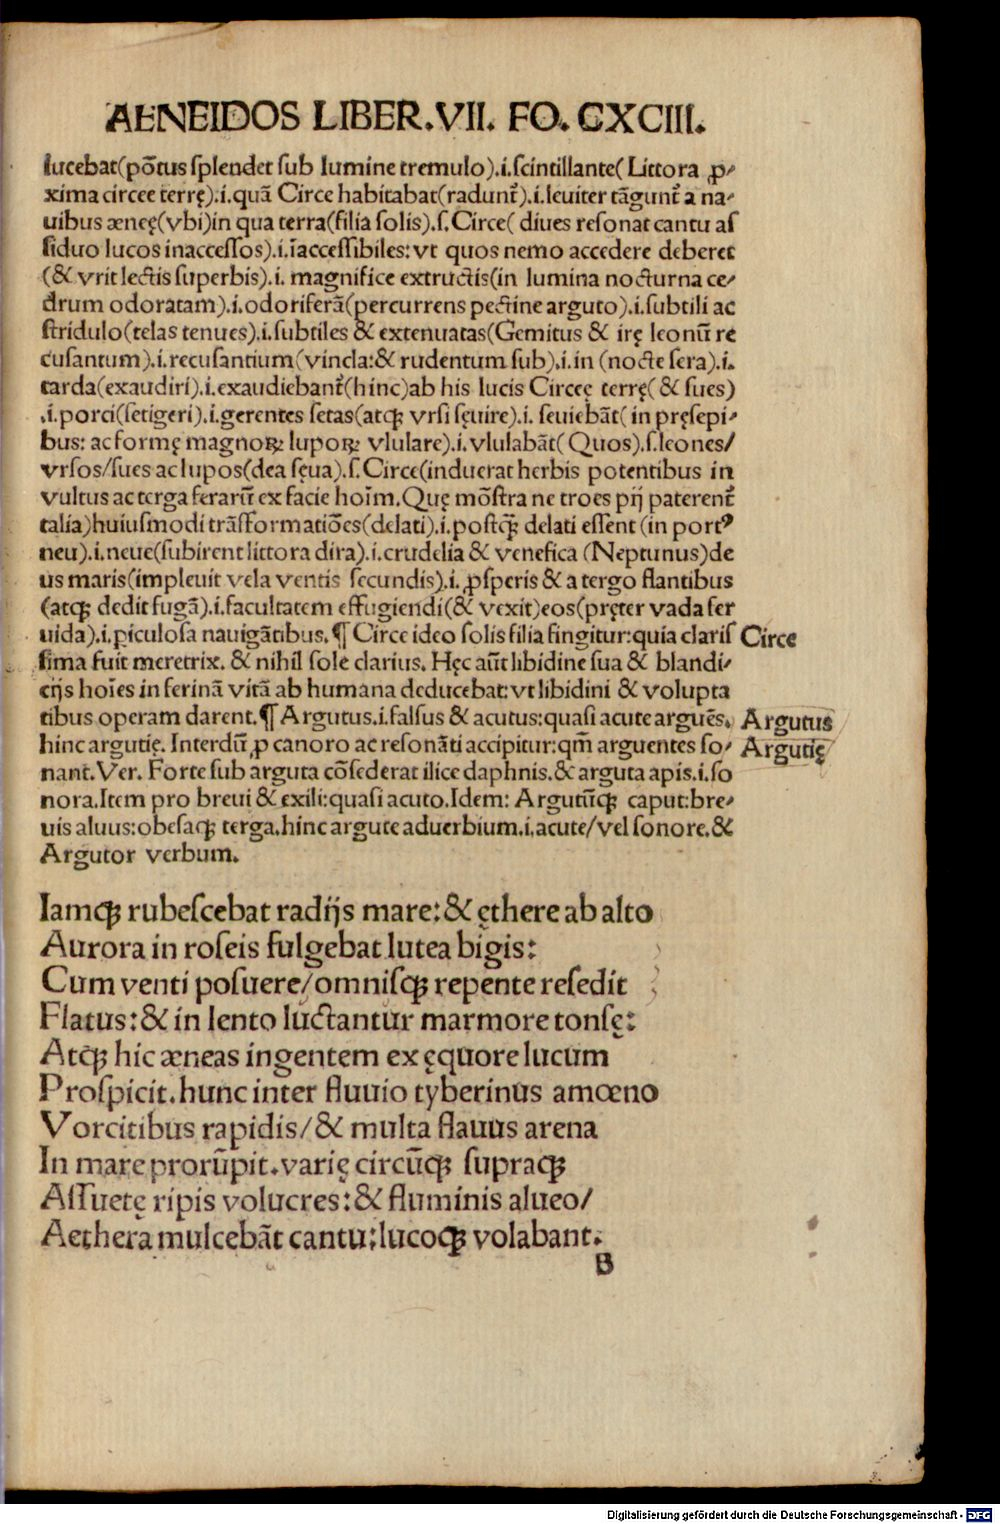 AENEIDOS LIBER.VII. FO. CXCIII.
lucebat(põtus splendet sub lumine tremulo).i.scintillante( Littora ꝓ-
xima circee terrę).i.quã Circe habitabat(radunt᷑).i.leuiter tãgunt᷑ a na-
uibus æneę(vbi)in qua terra(filia solis).s.Circe( diues resonat cantu as
siduo lucos inaccessos).i.ĩaccessibiles: vt quos nemo accedere deberet
(& vrit lectis superbis).i. magnifice extructis(in lumina nocturna ce-
drum odoratam).i.odoriferã(percurrens pectine arguto).i.subtili ac
stridulo(telas tenues).i.subtiles & extenuatas(Gemitus & irę leonũ re
cusantum).i.recusantium(vincla:& rudentum sub).i.in (nocte sera).i.
tarda(exaudiri).i.exaudiebant᷑(hinc)ab his lucis Circeę terrę( & sues)
.i.porci(setigeri).i.gerentes setas(atqꝫ vrsi sęuire).i. seuiebãt( in pręsepi-
bus: ac formę magnoꝝ lupoꝝ vlulare).i.vlulabãt( Quos).s.leones/
vrsos/sues ac lupos(dea sęua).s.Circe(induerat herbis potentibus in
vultus ac terga ferarũ ex facie hoĩm.Quę mõstra ne troes pij paterent᷑
talia)huiusmodi trãsformatiões(delati).i.postqꝫ delati essent (in portꝰ
neu).i.neue(subirent littora dira).i.crudelia & venefica (Neptunus)de
us maris(impleuit vela ventis secundis).i.ꝓsperis & a tergo flantibus
(atqꝫ dedit fugã).i.facultatem effugiendi(& vexit)eos(pręter vada fer
uida).i.ꝑiculosa nauigãtibus.¶ Circe ideo solis filia fingitur:quia claris
Circe
sima fuit meretrix. & nihil sole clarius. Hęc aũt libidine sua & blandi-
cijs hoĩes in ferinã vitã ab humana deducebat:vt libidini & volupta
tibus operam darent.¶ Argutus.i.falsus & acutus:quasi acute arguẽs.
Argutus
hinc argutię. Interdũ ꝓ canoro ac resonãti accipitur:qm̃ arguentes so-
Argutię
nant.Ver. Forte sub arguta cõsederat ilice daphnis.& arguta apis.i.so
nora.Item pro breui & exili:quasi acuto.Idem: Argutũqꝫ caput:bre-
uis aluus:obesaqꝫ terga.hinc argute aduerbium.i.acute/vel sonore.&
Argutor verbum.
Iamqꝫ rubescebat radijs mare:& ęthere ab alto
Aurora in roseis fulgebat lutea bigis:
Cum venti posuere/omnisqꝫ repente resedit
Flatus:& in lento luctantur marmore tonsę:
Atqꝫ hic æneas ingentem ex ęquore lucum
Prospicit.hunc inter fluuio tyberinus amœno
Vorcitibus rapidis/& multa flauus arena
In mare prorũpit.varię circũqꝫ supraqꝫ
Assuetę ripis volucres:& fluminis alueo/
Aethera mulcebãt cantu:lucoqꝫ volabant.
B
Digitalisierung gefördert durch die Deutsche Forschungsgemeinschaft - DFG